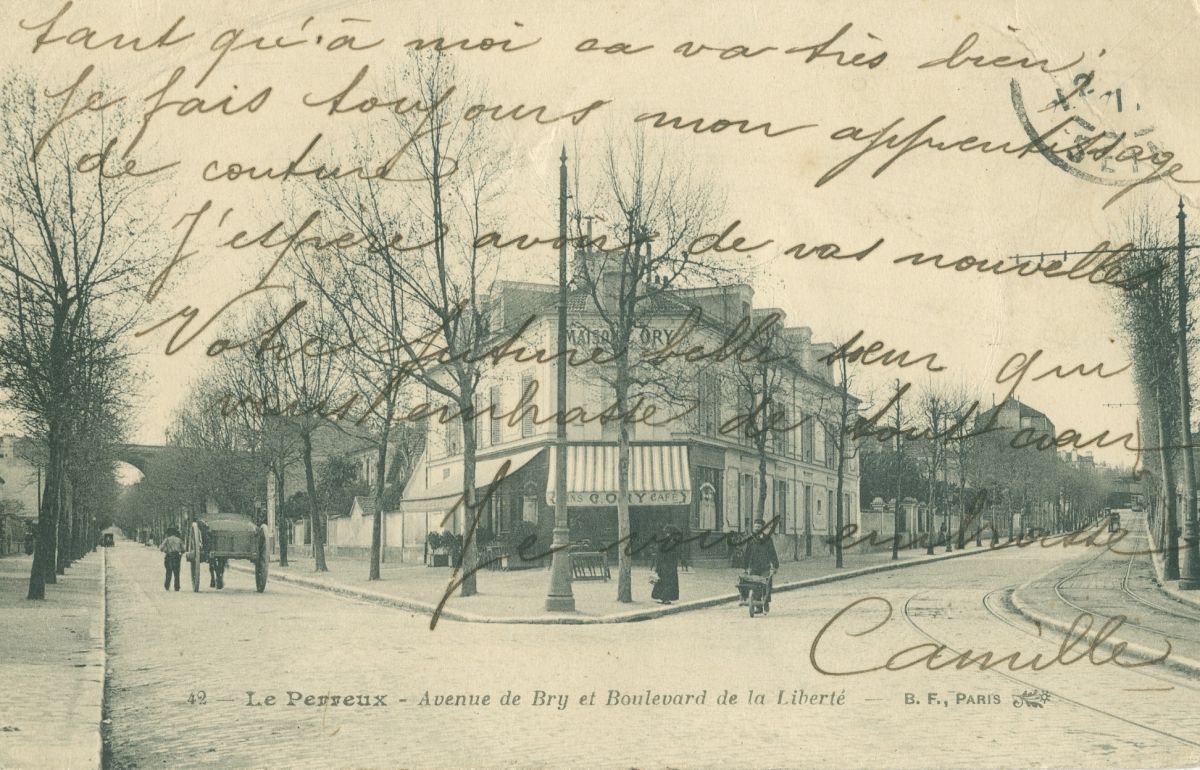 tant qu'à moi ca va très bien
Je fais toujours mon apprentissage
de couture
J'espère avoir de vos nouvelles
Votre future belle sœur qui
vous embrasse de tout
MAISON GORY
VINS G. GORY CAFÉ
Je vous embrasse
Camille
42 — Le Perreux - Avenue de Bry et Boulevard de la Liberté — B. F., PARIS